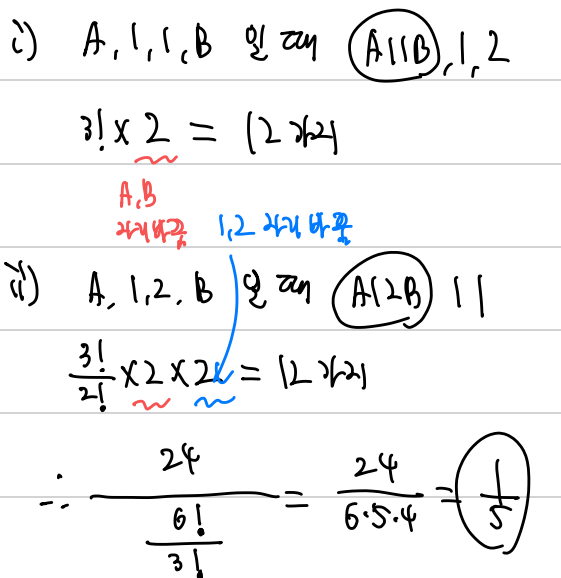 i) A, 1, 1, B 일 때 (A11B), 1, 2
3! × 2 = 12가지
A, B
자리바꿈 1,2 자리 바꿈
ii) A, 1, 2, B 일 때 (A12B) 1 1
3!/2! × 2 × 2 = 12가지
∴ 24/(6!/3!) = 24/(6·5·4) = 1/5